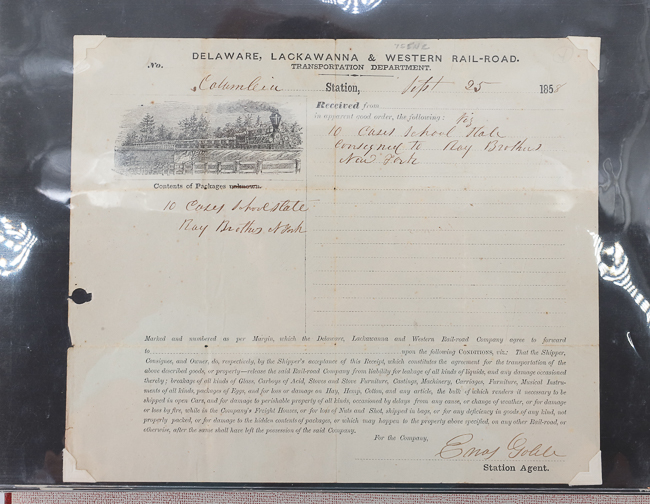 DELAWARE, LACKAWANNA & WESTERN RAIL-ROAD.
TRANSPORTATION DEPARTMENT.
No.
Columbia Station, Sept 25 1858
Received from
in apparent good order, the following: Viz
10 Cases School Slate
Consigned to Ray Brothers
New York
Contents of Packages unknown.
10 Cases School Slate
Ray Brothers N York
Marked and numbered as per Margin, which the Delaware, Lackawanna and Western Rail-road Company agree to forward
to upon the following CONDITIONS, viz.: That the Shipper,
Consignee, and Owner, do, respectively, by the Shipper's acceptance of this Receipt, which constitutes the agreement for the transportation of the
above described goods, or property—release the said Rail-road Company from liability for leakage of all kinds of liquids, and any damage occasioned
thereby; breakage of all kinds of Glass, Carboys of Acid, Stoves and Stove Furniture, Castings, Machinery, Carriages, Furniture, Musical Instru-
ments of all kinds, packages of Eggs, and for loss or damage on Hay, Hemp, Cotton, and any article, the bulk of which renders it necessary to be
shipped in open Cars, and for damage to perishable property of all kinds, occasioned by delays from any cause, or change of weather, or for damage
or loss by fire, while in the Company's Freight Houses, or for loss of Nuts and Seed, shipped in bags, or for any deficiency in goods of any kind, not
properly packed, or for damage to the hidden contents of packages, or which may happen to the property above specified, on any other Rail-road, or
otherwise, after the same shall have left the possession of the said Company.
For the Company,
Enos Goble
Station Agent.